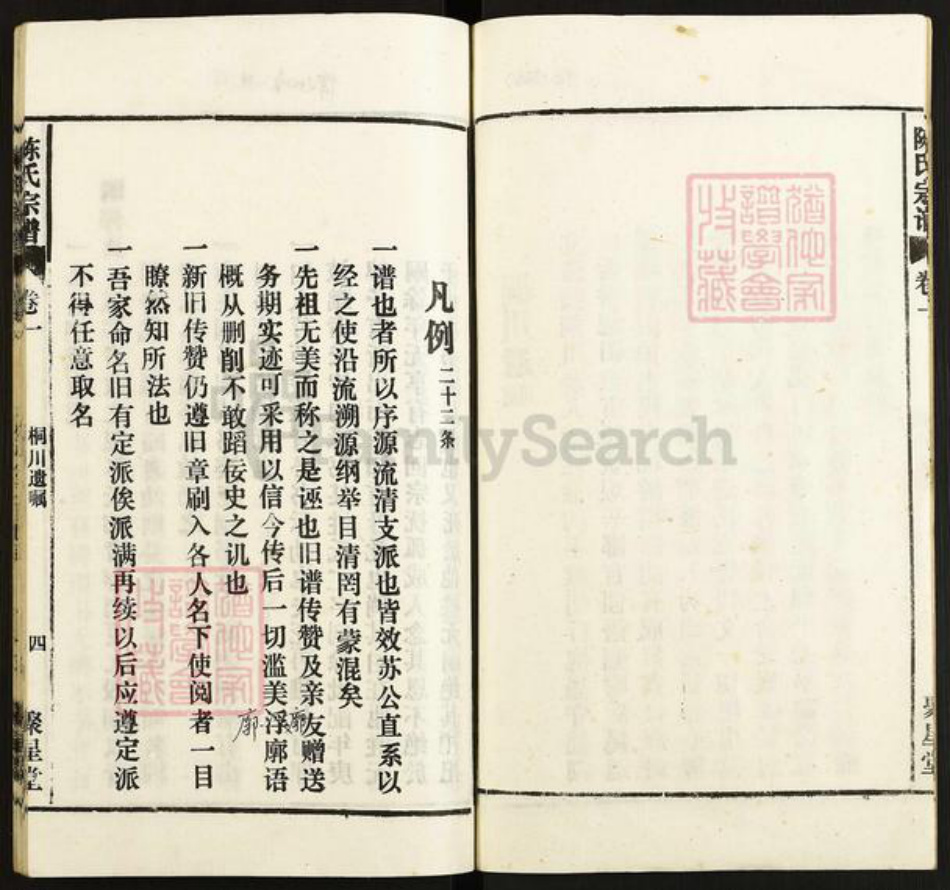 陈氏宗谱
卷一
凡例 二十二条
一谱也者所以序源流清支派也皆效苏公直系以
经之使沿流溯源纲举目清罔有蒙混矣
一先祖无美而称之是诬也旧谱传赞及亲友赠送
务期实迹可采用以信今传后一切滥美浮廓语
概从删削不敢蹈佞史之讥也
一新旧传赞仍遵旧章刷入各人名下使阅者一目
瞭然知所法也
一吾家命名旧有定派俟派满再续以后应遵定派
不得任意取名
廓
陈氏宗谱
卷一
桐川遗嘱
四
聚星堂
聚星堂
FamilySearch